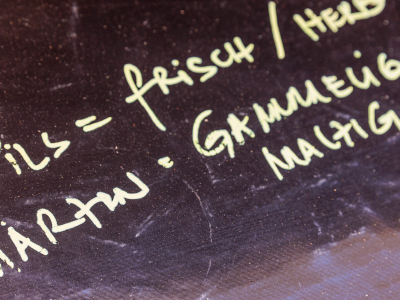 ILS = FRISCH / HERB
MÄRZEN = GAMMELIG
MALZIG